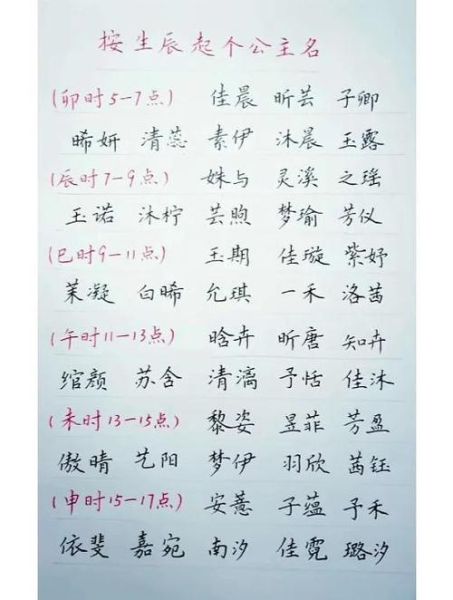 按生辰起个公主名
(卯时5-7点) 佳晨 昕芸 子卿
晞妍 清蕊 素伊 沐晨 玉露
(辰时7-9点) 姝与 灵溪 之瑶
玉诺 沐柠 芸煦 梦瑜 芳仪
(巳时9-11点) 玉期 佳璇 紫妤
茉凝 白晞 允琪 一禾 洛茜
(午时11-13点) 晗卉 昕唐 知卉
绾颜 苏含 清漓 予恬 佳沐
(未时13-15点) 黎姿 昱菲 芳盈
傲晴 艺阳 梦伊 羽欣 茜钰
(申时15-17点) 安薏 子蕴 予禾
依斐 嘉宛 南汐 佳霓 璐汐